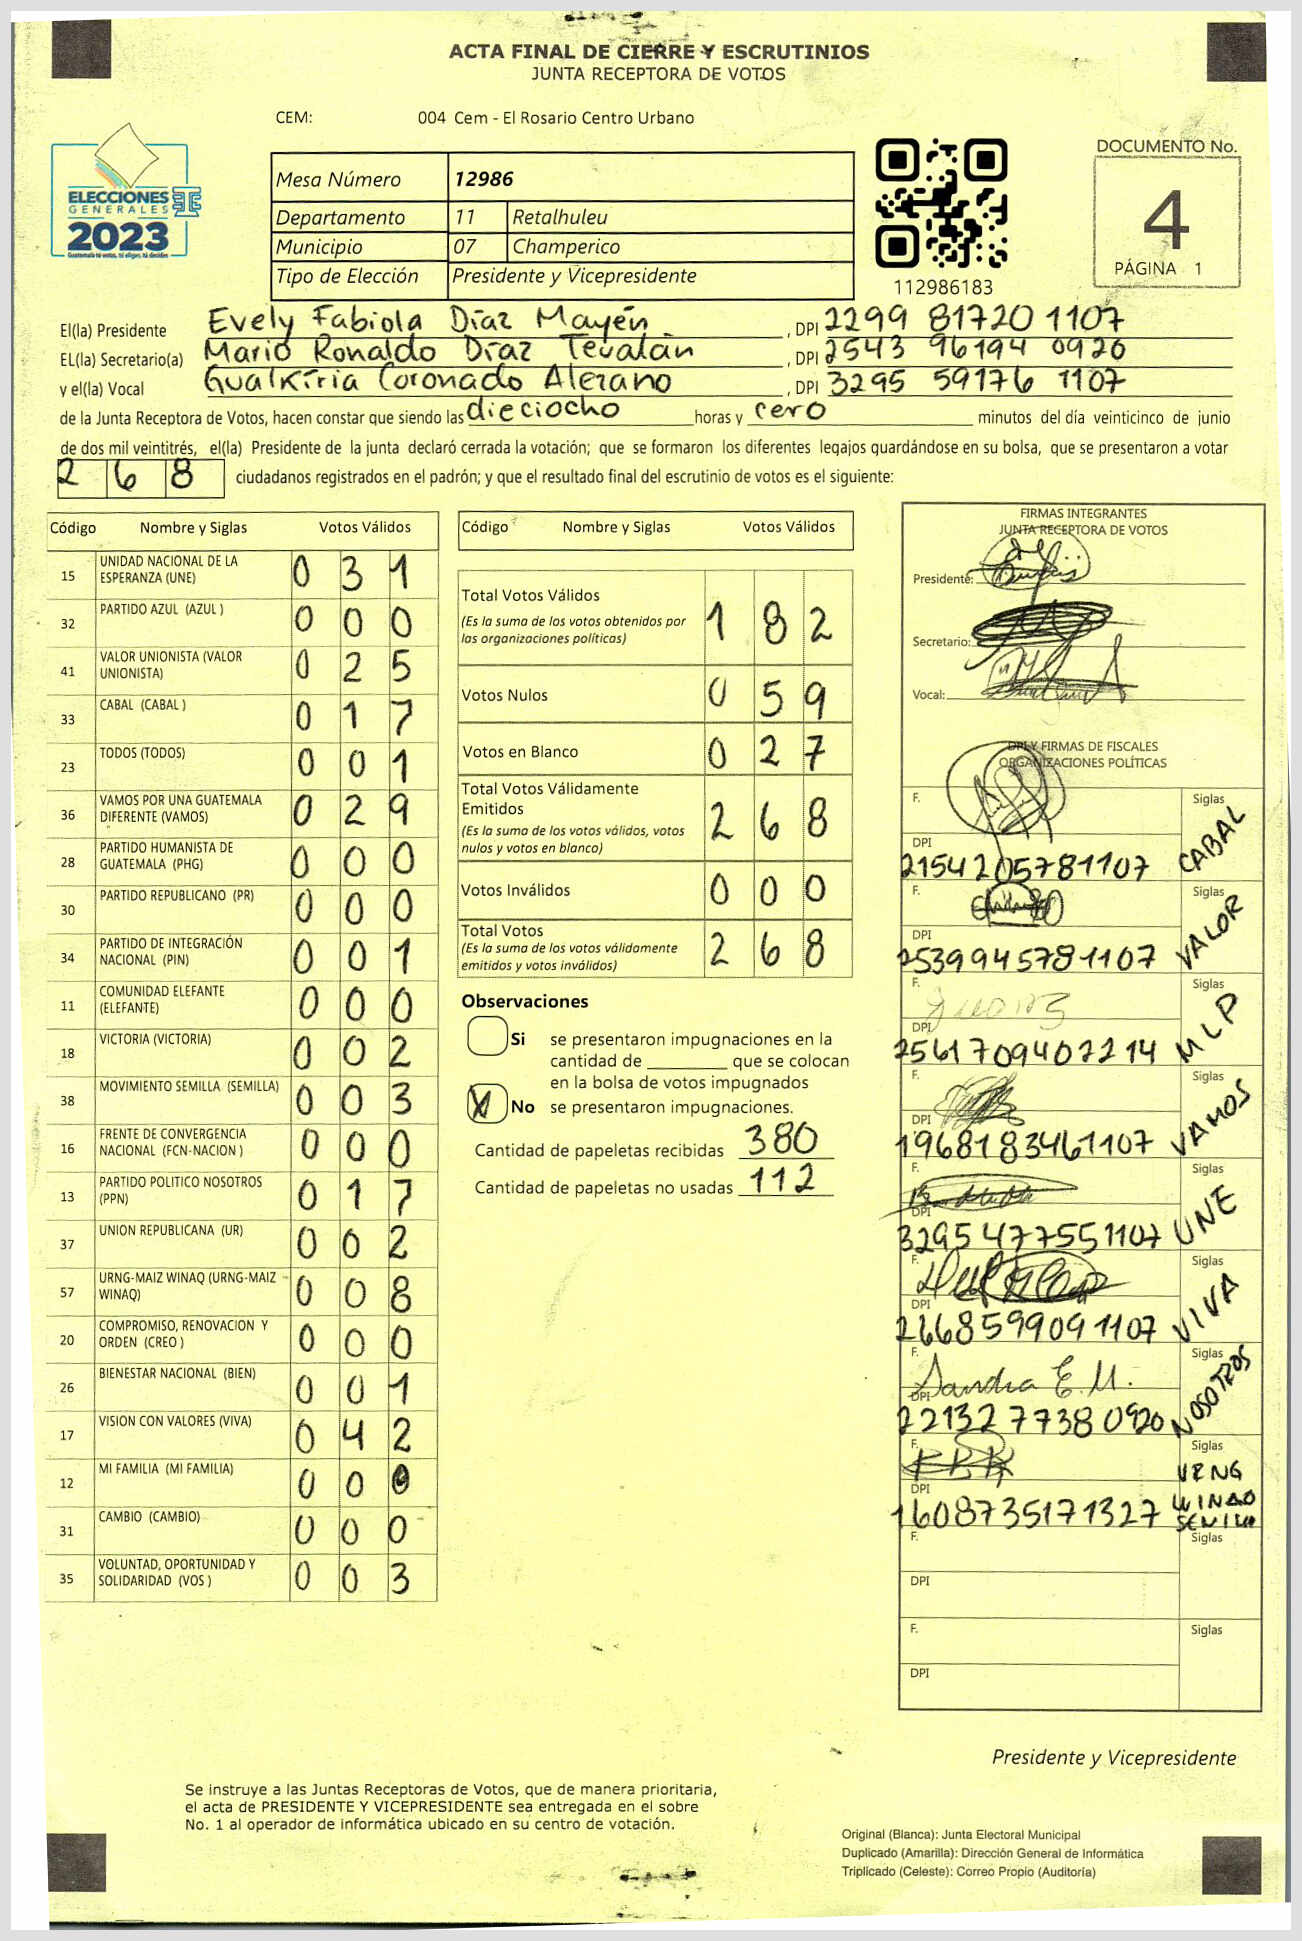 ACTA FINAL DE CIERRE Y ESCRUTINIOS
JUNTA RECEPTORA DE VOTOS
CEM: 004 Cem - El Rosario Centro Urbano
ELECCIONES
GENERALES
2023
Guatemala tú votas, tú eliges, tú decides
Mesa Número 12986
Departamento 11 Retalhuleu
Municipio 07 Champerico
Tipo de Elección Presidente y Vicepresidente
112986183
DOCUMENTO No.
4
PÁGINA 1
El(la) Presidente Evely Fabiola Díaz Mayén , DPI 2299 81720 1107
EL(la) Secretario(a) Mario Ronaldo Díaz Tevalán , DPI 2543 96194 0920
y el(la) Vocal Gualkiria Coronado Alezano , DPI 3295 59176 1107
de la Junta Receptora de Votos, hacen constar que siendo las dieciocho horas y cero minutos del día veinticinco de junio
de dos mil veintitrés, el(la) Presidente de la junta declaró cerrada la votación; que se formaron los diferentes legajos guardándose en su bolsa, que se presentaron a votar
2 6 8 ciudadanos registrados en el padrón; y que el resultado final del escrutinio de votos es el siguiente:
Código Nombre y Siglas Votos Válidos
15 UNIDAD NACIONAL DE LA ESPERANZA (UNE) 0 3 1
32 PARTIDO AZUL (AZUL ) 0 0 0
41 VALOR UNIONISTA (VALOR UNIONISTA) 0 2 5
33 CABAL (CABAL ) 0 1 7
23 TODOS (TODOS) 0 0 1
36 VAMOS POR UNA GUATEMALA DIFERENTE (VAMOS) 0 2 9
28 PARTIDO HUMANISTA DE GUATEMALA (PHG) 0 0 0
30 PARTIDO REPUBLICANO (PR) 0 0 0
34 PARTIDO DE INTEGRACIÓN NACIONAL (PIN) 0 0 1
11 COMUNIDAD ELEFANTE (ELEFANTE) 0 0 0
18 VICTORIA (VICTORIA) 0 0 2
38 MOVIMIENTO SEMILLA (SEMILLA) 0 0 3
16 FRENTE DE CONVERGENCIA NACIONAL (FCN-NACION ) 0 0 0
13 PARTIDO POLITICO NOSOTROS (PPN) 0 1 7
37 UNION REPUBLICANA (UR) 0 0 2
57 URNG-MAIZ WINAQ (URNG-MAIZ WINAQ) 0 0 8
20 COMPROMISO, RENOVACION Y ORDEN (CREO ) 0 0 0
26 BIENESTAR NACIONAL (BIEN) 0 0 1
17 VISION CON VALORES (VIVA) 0 4 2
12 MI FAMILIA (MI FAMILIA) 0 0 0
31 CAMBIO (CAMBIO) 0 0 0
35 VOLUNTAD, OPORTUNIDAD Y SOLIDARIDAD (VOS ) 0 0 3
Código Nombre y Siglas Votos Válidos
Total Votos Válidos
(Es la suma de los votos obtenidos por
las organizaciones políticas) 1 8 2
Votos Nulos 0 5 9
Votos en Blanco 0 2 7
Total Votos Válidamente
Emitidos
(Es la suma de los votos válidos, votos
nulos y votos en blanco) 2 6 8
Votos Inválidos 0 0 0
Total Votos
(Es la suma de los votos válidamente
emitidos y votos inválidos) 2 6 8
Observaciones
Si se presentaron impugnaciones en la
cantidad de ________ que se colocan
en la bolsa de votos impugnados
X No se presentaron impugnaciones.
Cantidad de papeletas recibidas 380
Cantidad de papeletas no usadas 112
FIRMAS INTEGRANTES
JUNTA RECEPTORA DE VOTOS
Presidente:
Secretario:
Vocal:
DPI Y FIRMAS DE FISCALES
ORGANIZACIONES POLÍTICAS
F. Siglas
DPI
2154205781107 CABAL
F. Siglas
DPI
2539945781107 VALOR
F. Siglas
DPI
2561709402214 MLP
F. Siglas
DPI
1968183461107 VAMOS
F. Siglas
DPI
3295477551107 UNE
F. Siglas
DPI
2668599091107 VIVA
F. Siglas
Sandra E. M.
DPI
2213277380920 NOSOTROS
F. Siglas
DPI URNG
1608735171327 WINAQ
SEMILLA
F. Siglas
DPI
F. Siglas
DPI
Presidente y Vicepresidente
Se instruye a las Juntas Receptoras de Votos, que de manera prioritaria,
el acta de PRESIDENTE Y VICEPRESIDENTE sea entregada en el sobre
No. 1 al operador de informática ubicado en su centro de votación.
Original (Blanca): Junta Electoral Municipal
Duplicado (Amarilla): Dirección General de Informática
Triplicado (Celeste): Correo Propio (Auditoría)